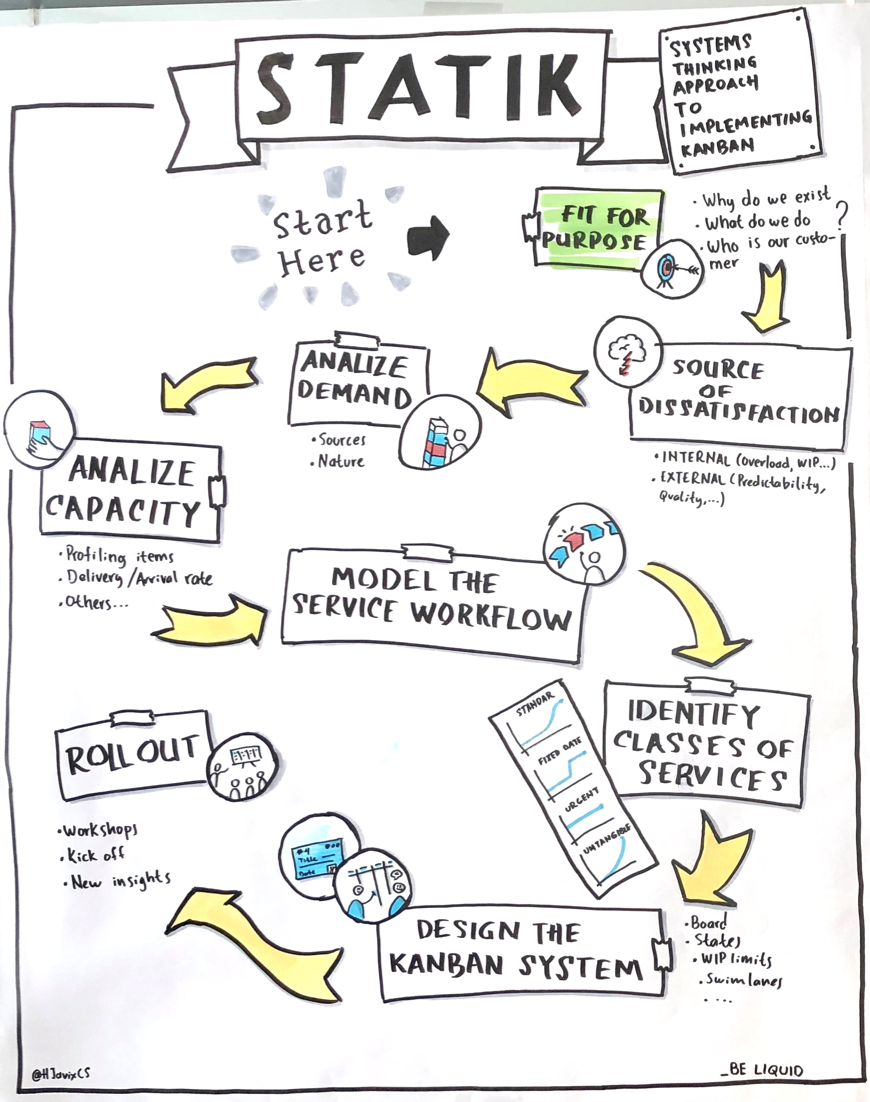 STATIK
SYSTEMS
THINKING
APPROACH
TO
IMPLEMENTING
KANBAN
Start
Here
FIT FOR
PURPOSE
• Why do we exist
• What do we do
• Who is our custo-
mer
?
SOURCE
OF
DISSATISFACTION
• INTERNAL (Overload, WIP...)
• EXTERNAL (Predictability,
Quality,...)
ANALIZE
DEMAND
• Sources
• Nature
ANALIZE
CAPACITY
• Profiling items
• Delivery/Arrival rate
• Others...
MODEL THE
SERVICE WORKFLOW
IDENTIFY
CLASSES OF
SERVICES
STANDAR
FIXED DATE
URGENT
UNTANGIBLE
DESIGN THE
KANBAN SYSTEM
• Board
• States
• WIP limits
• Swimlanes
• ...
Title
Date
ROLL OUT
• Workshops
• Kick off
• New insights
@HJavixCS
_BE LIQUID